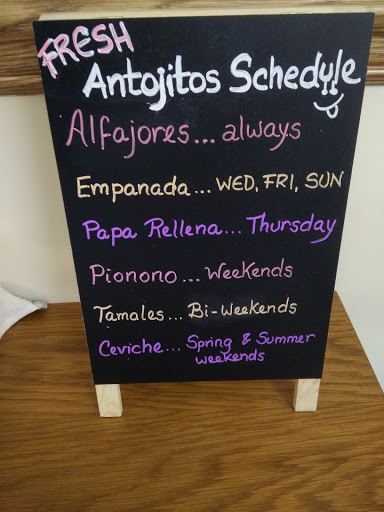 FRESH
Antojitos Schedule
Alfajores... always
Empanada... WED, FRI, SUN
Papa Rellena... Thursday
Pionono... Weekends
Tamales... Bi-Weekends
Ceviche... Spring & Summer
weekends